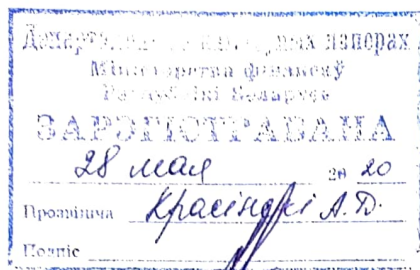 Дэпартамент па каштоўных паперах
Міністэрства фінансаў
Рэспублікі Беларусь
ЗАРЭГІСТРАВАНА
28 мая 20 20
Прозвішча Красінскі А.В.
Подпіс